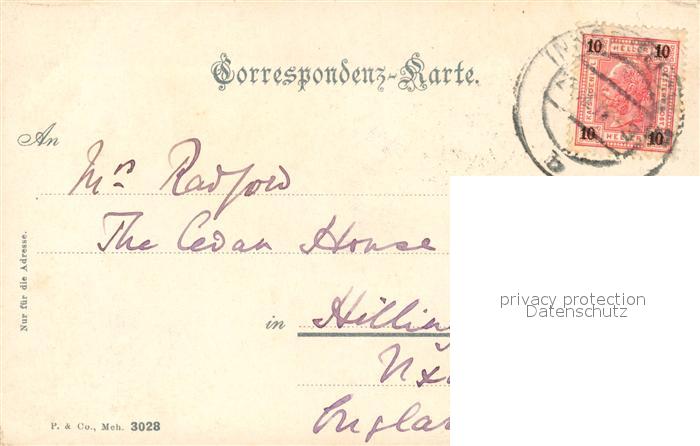 Correspondenz-Karte.
10 HELLER 10
10 HELLER 10
An
Mrs Radford
The Cedar House
in Hillin
Uxb
England
Nur für die Adresse.
privacy protection
Datenschutz
P. & Co., Mch. 3028